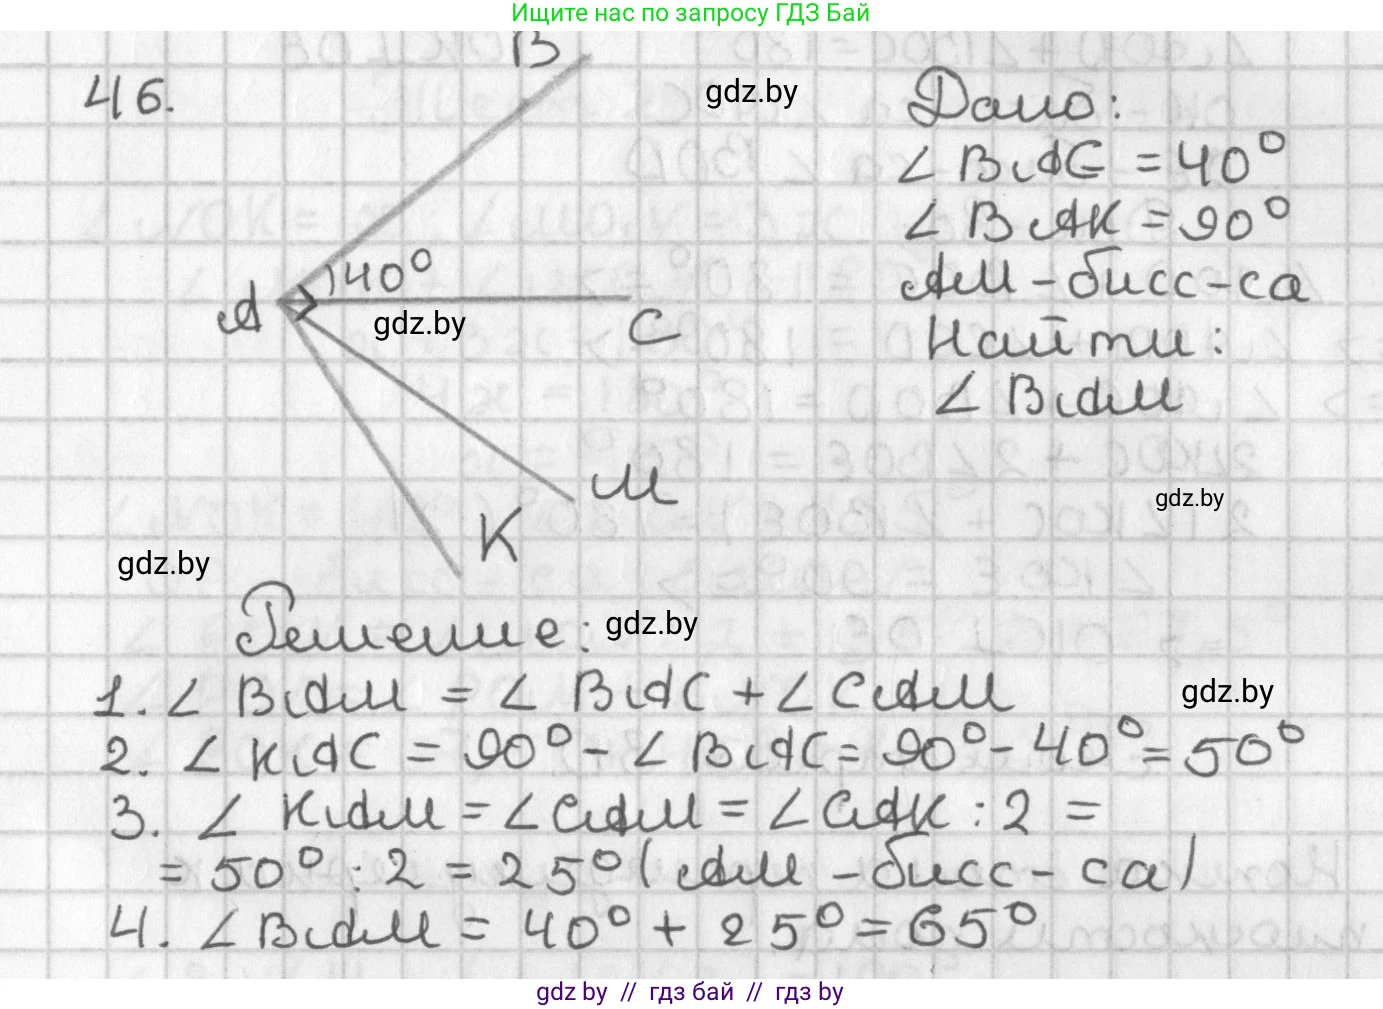 Ищите нас по запросу ГДЗ Бай
46.
B
gdz.by
Дано:
∠BAC = 40°
∠BAK = 90°
AM - бисс-са
Найти:
∠BAM
40°
A
gdz.by
C
M
K
gdz.by
gdz.by
Решение:
gdz.by
1. ∠BAM = ∠BAC + ∠CAM
gdz.by
2. ∠KAC = 90° - ∠BAC = 90° - 40° = 50°
3. ∠KAM = ∠CAM = ∠CAK : 2 =
= 50° : 2 = 25° (AM - бисс-са)
4. ∠BAM = 40° + 25° = 65°
gdz.by // гдз бай // гдз by